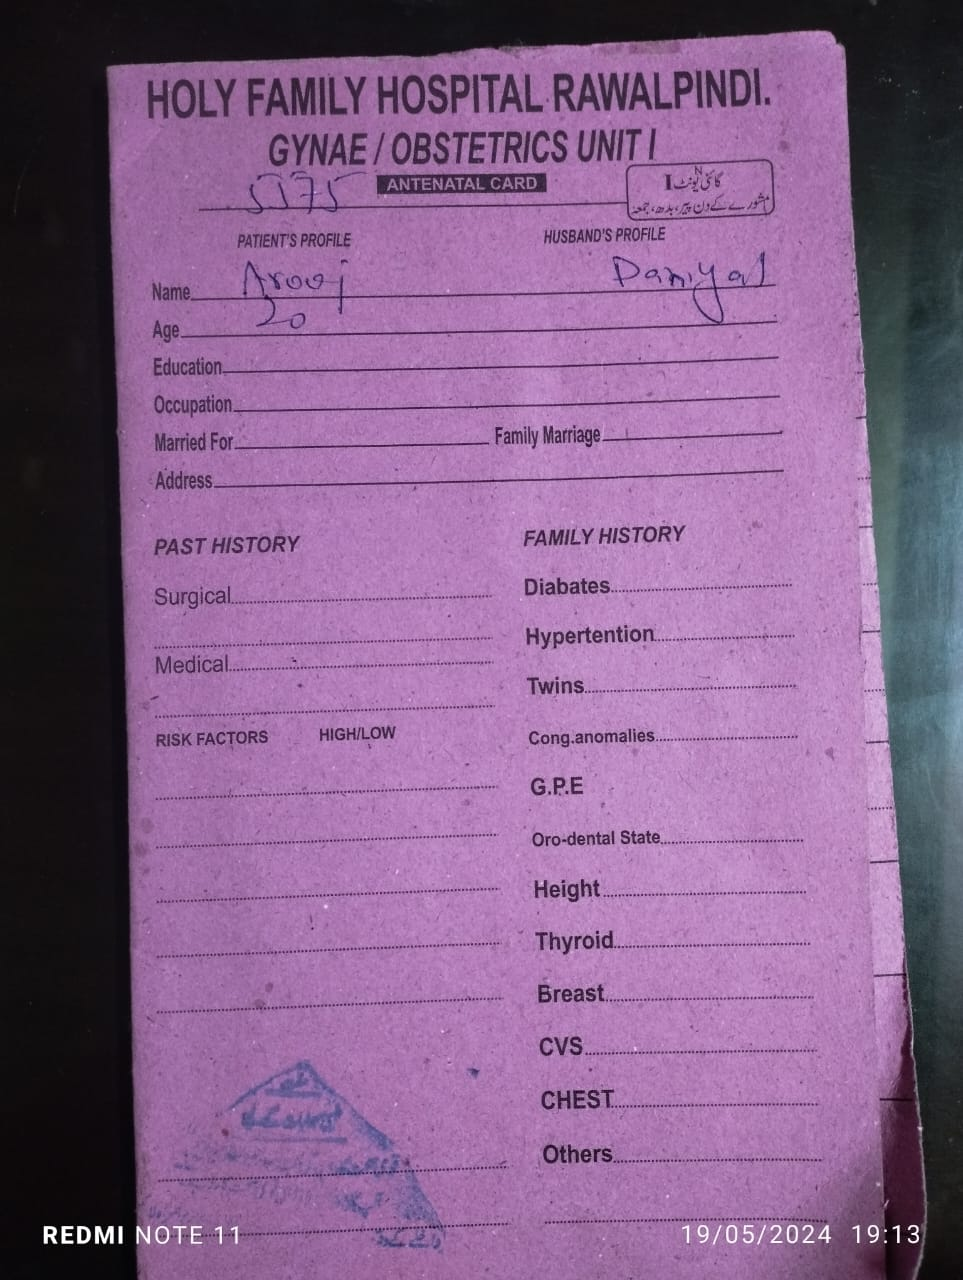 HOLY FAMILY HOSPITAL RAWALPINDI.
GYNAE / OBSTETRICS UNIT I
5575 ANTENATAL CARD
گائنی یونٹ I
مشورے کے دن پیر، بدھ، جمعہ
PATIENT'S PROFILE HUSBAND'S PROFILE
Name Arooj Daniyal
Age 20
Education
Occupation
Married For Family Marriage
Address
PAST HISTORY
Surgical
Medical
RISK FACTORS HIGH/LOW
FAMILY HISTORY
Diabates
Hypertention
Twins
Cong.anomalies
G.P.E
Oro-dental State
Height
Thyroid
Breast
CVS
CHEST
Others
REDMI NOTE 11 19/05/2024 19:13